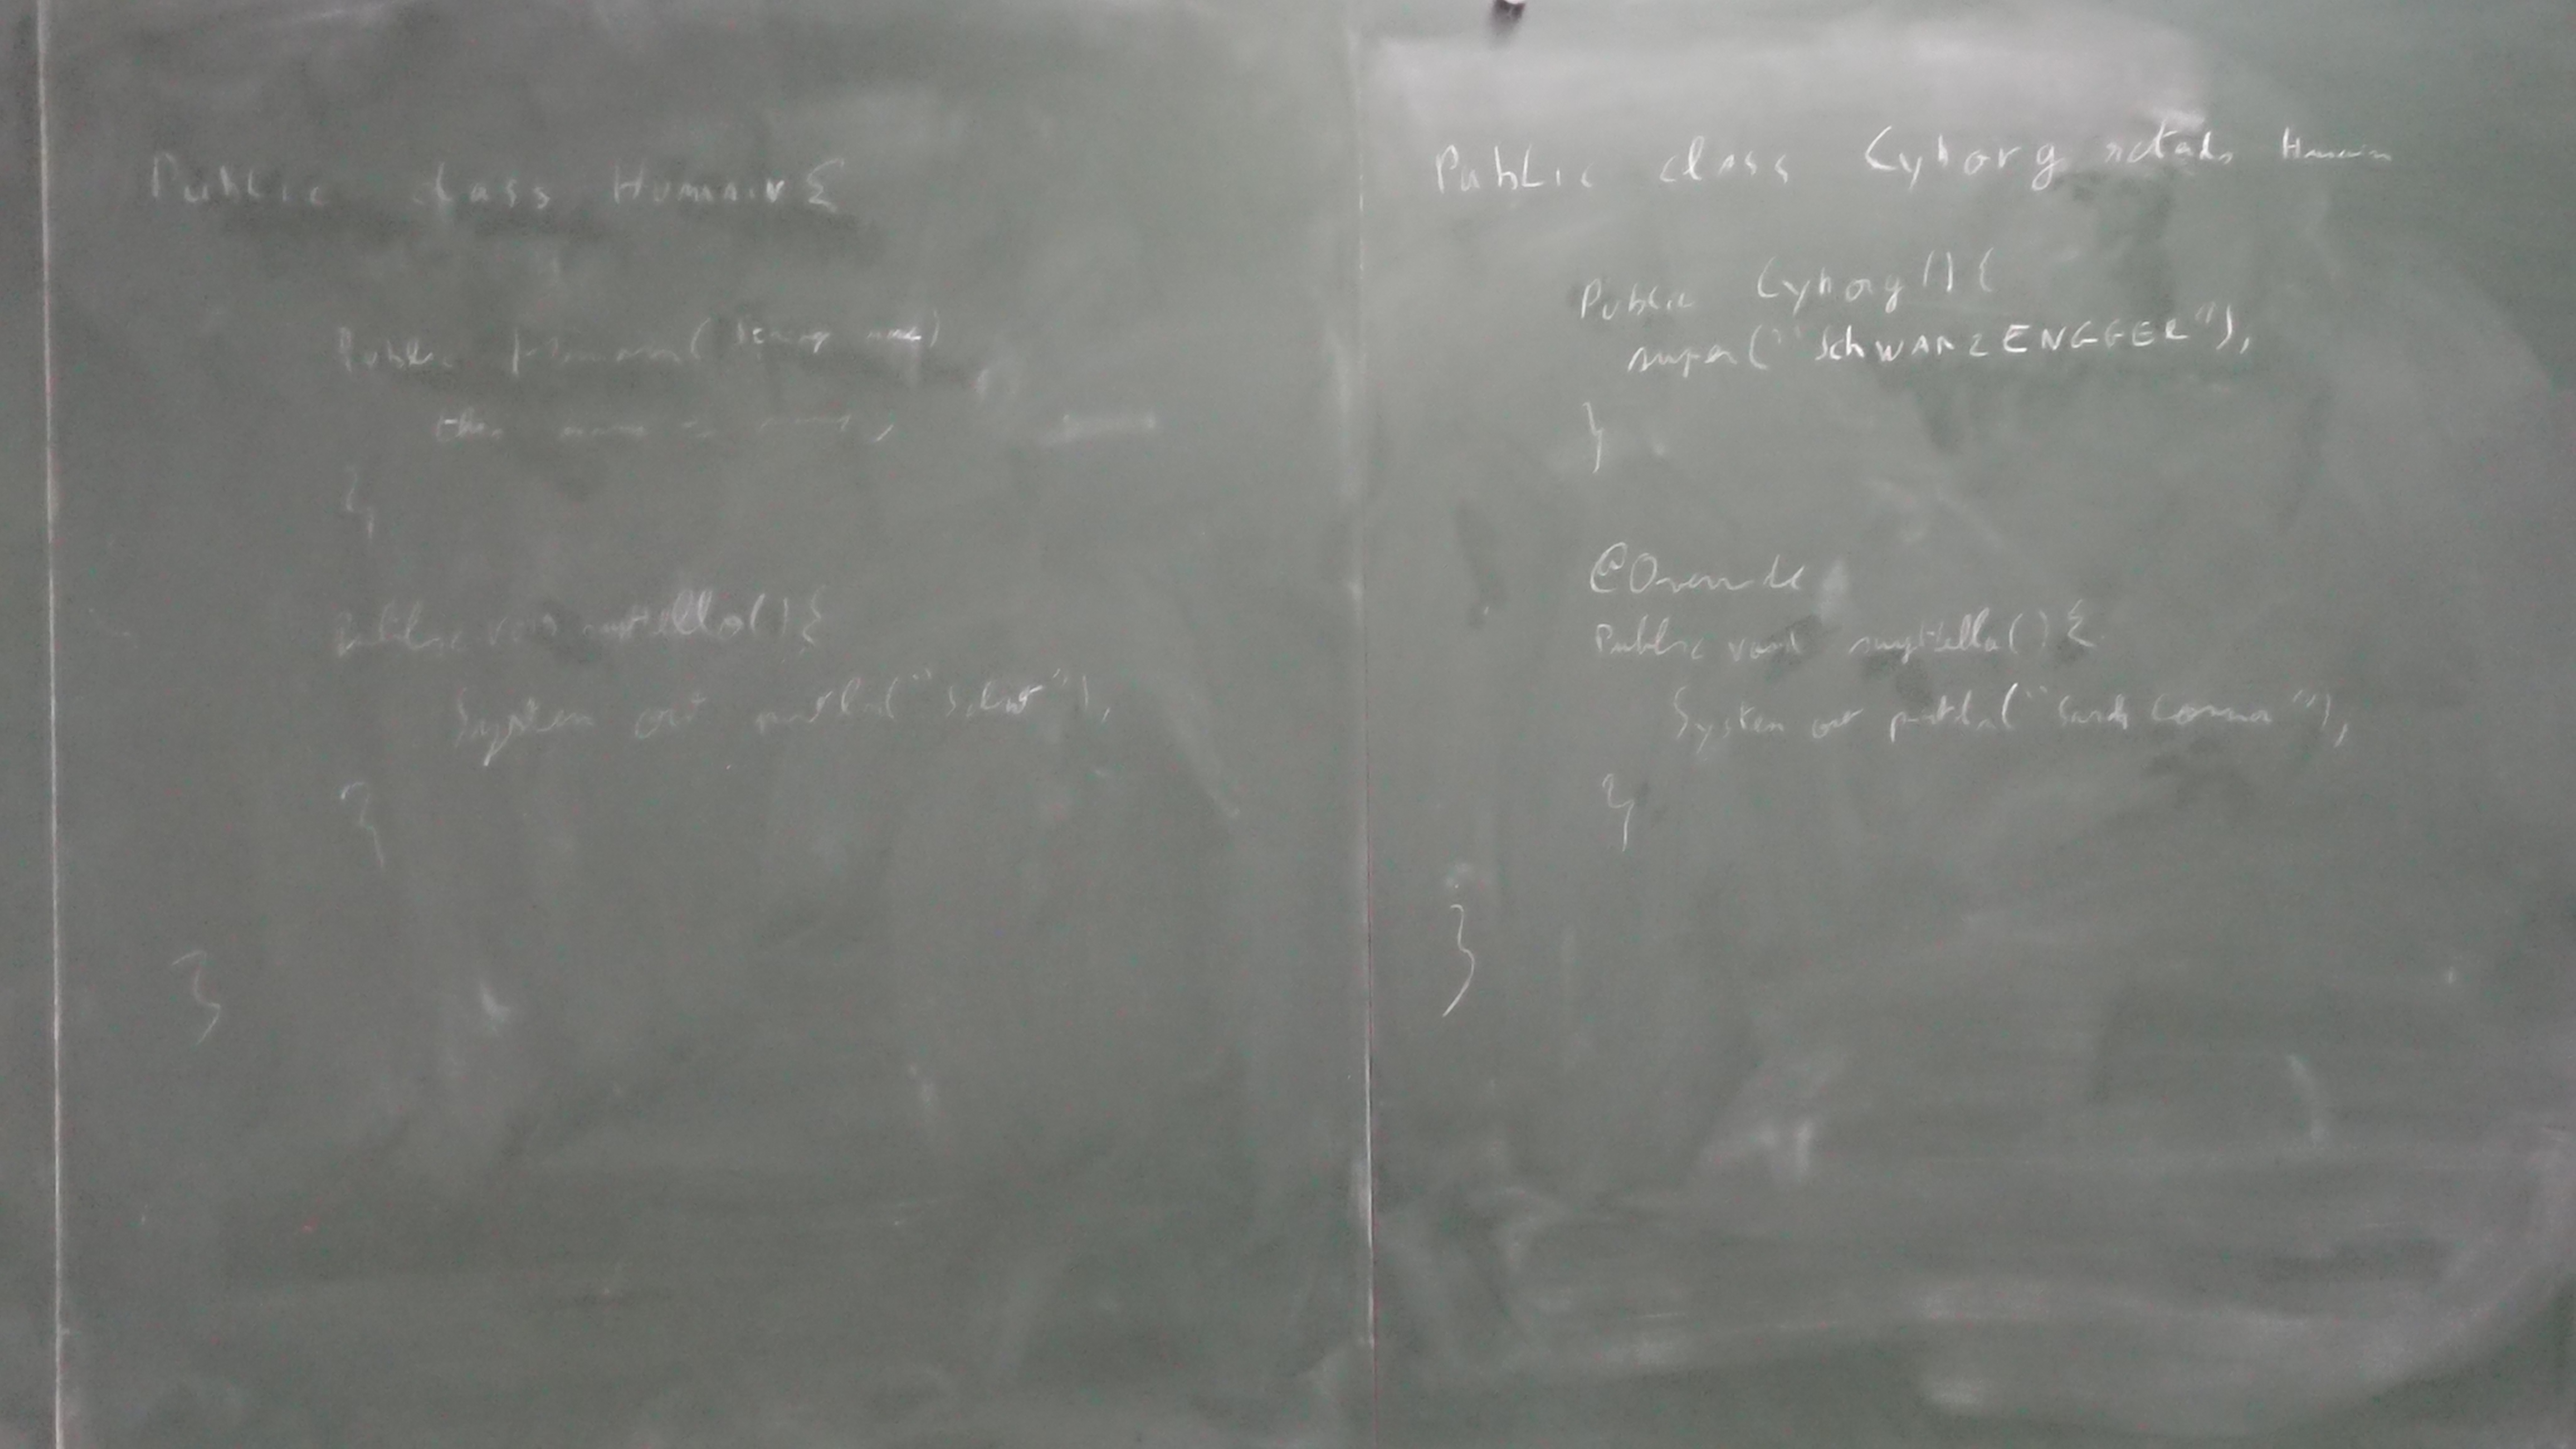 Public class Humain {
Public Humain( String nom)
this nom = nom ;
}
Public void sayHello() {
System out println("Salut"),
}
}
Public class Cyborg extends Humain
Public Cyborg() {
super("SchWARZENEGGER"),
}
@Override
Public void sayHello() {
System out println("Sarah Connor"),
}
}